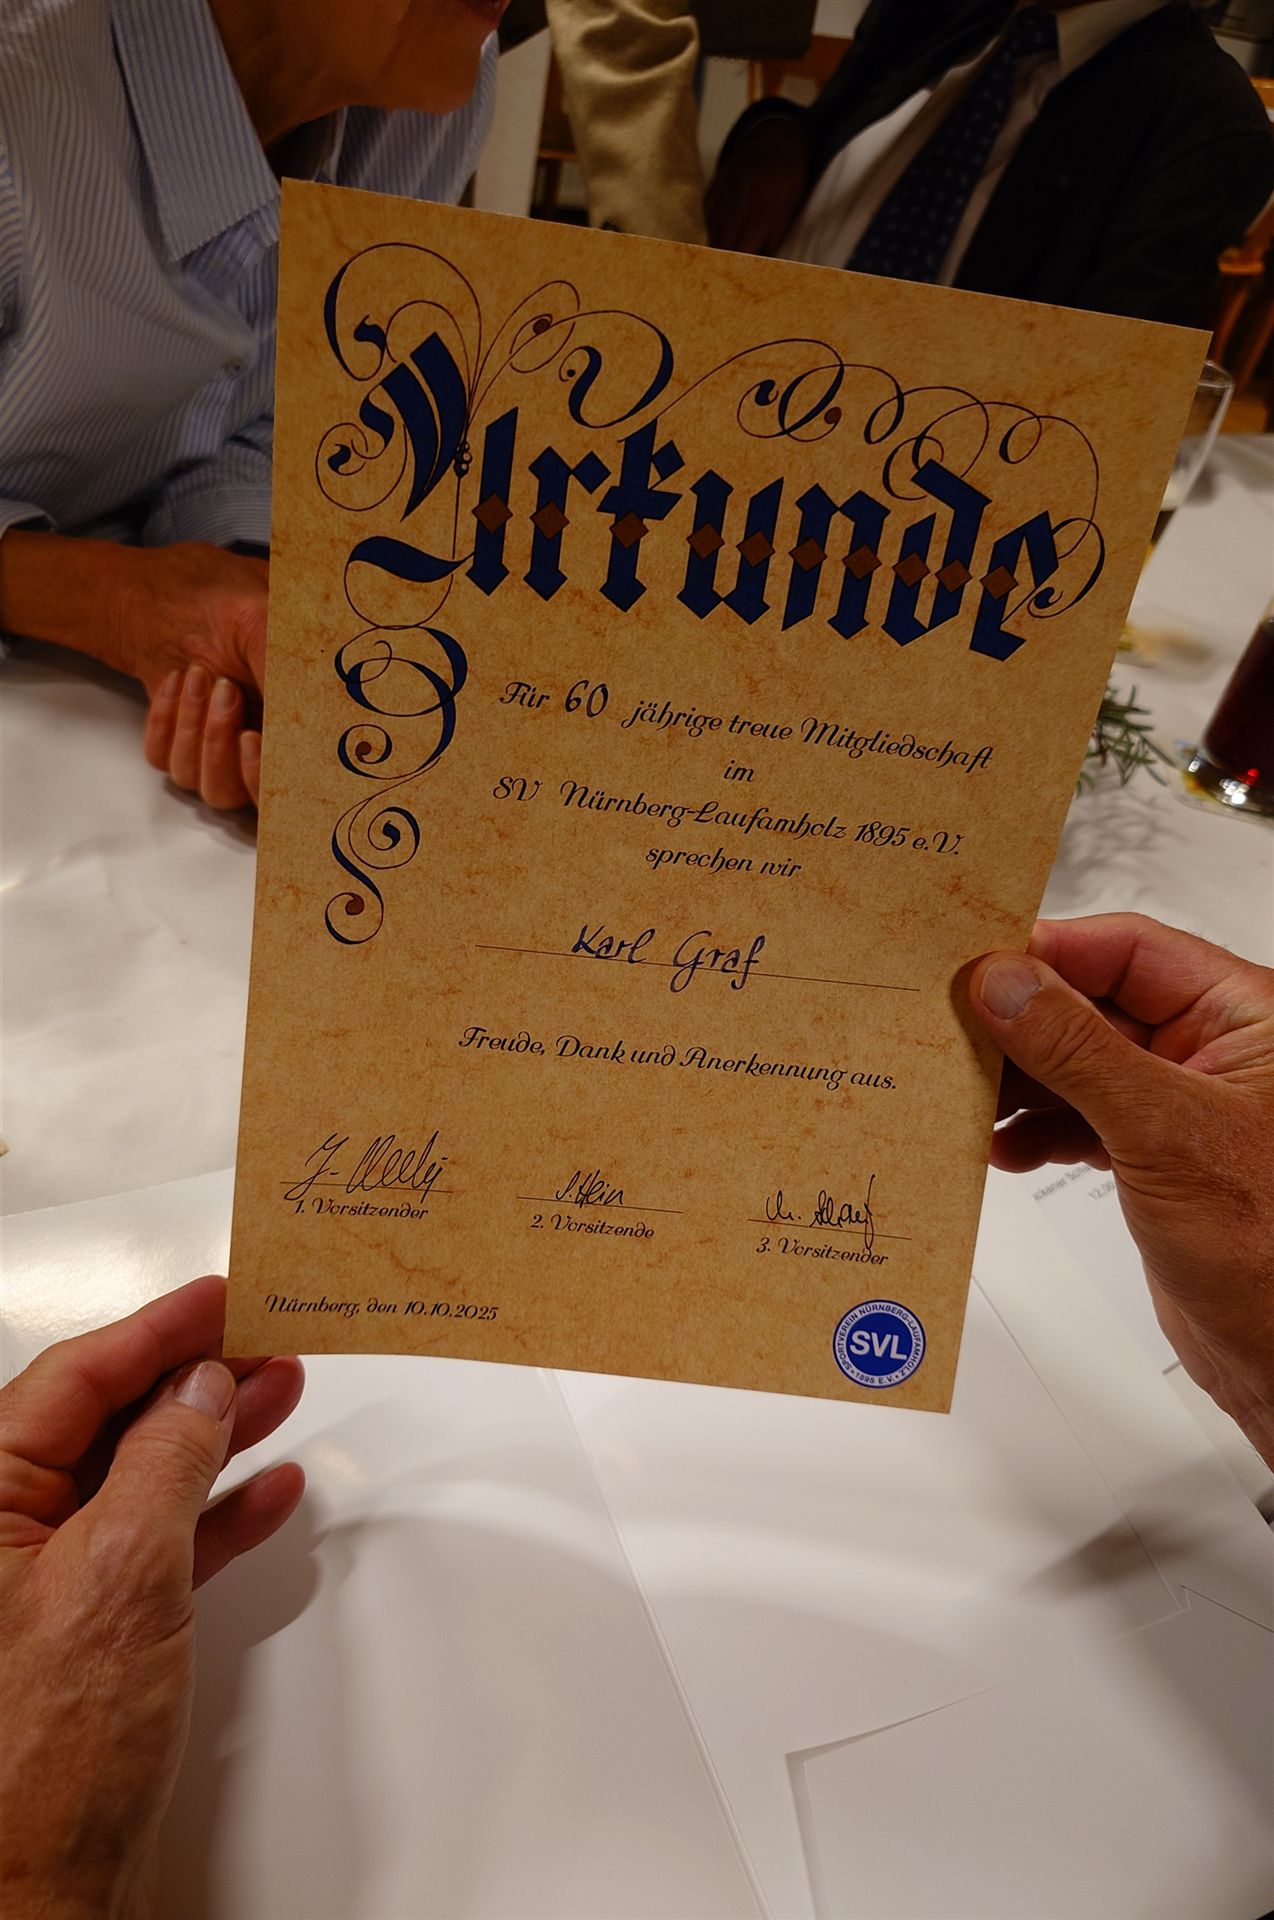 Urkunde
Für 60 jährige treue Mitgliedschaft
im
SV Nürnberg-Laufamholz 1895 e.V.
sprechen wir
Karl Graf
Freude, Dank und Anerkennung aus.
S. Hein
1. Vorsitzender
2. Vorsitzende
3. Vorsitzender
Nürnberg, den 10.10.2025
SPORTVEREIN NÜRNBERG-LAUFAMHOLZ
SVL
• 1895 E.V. •